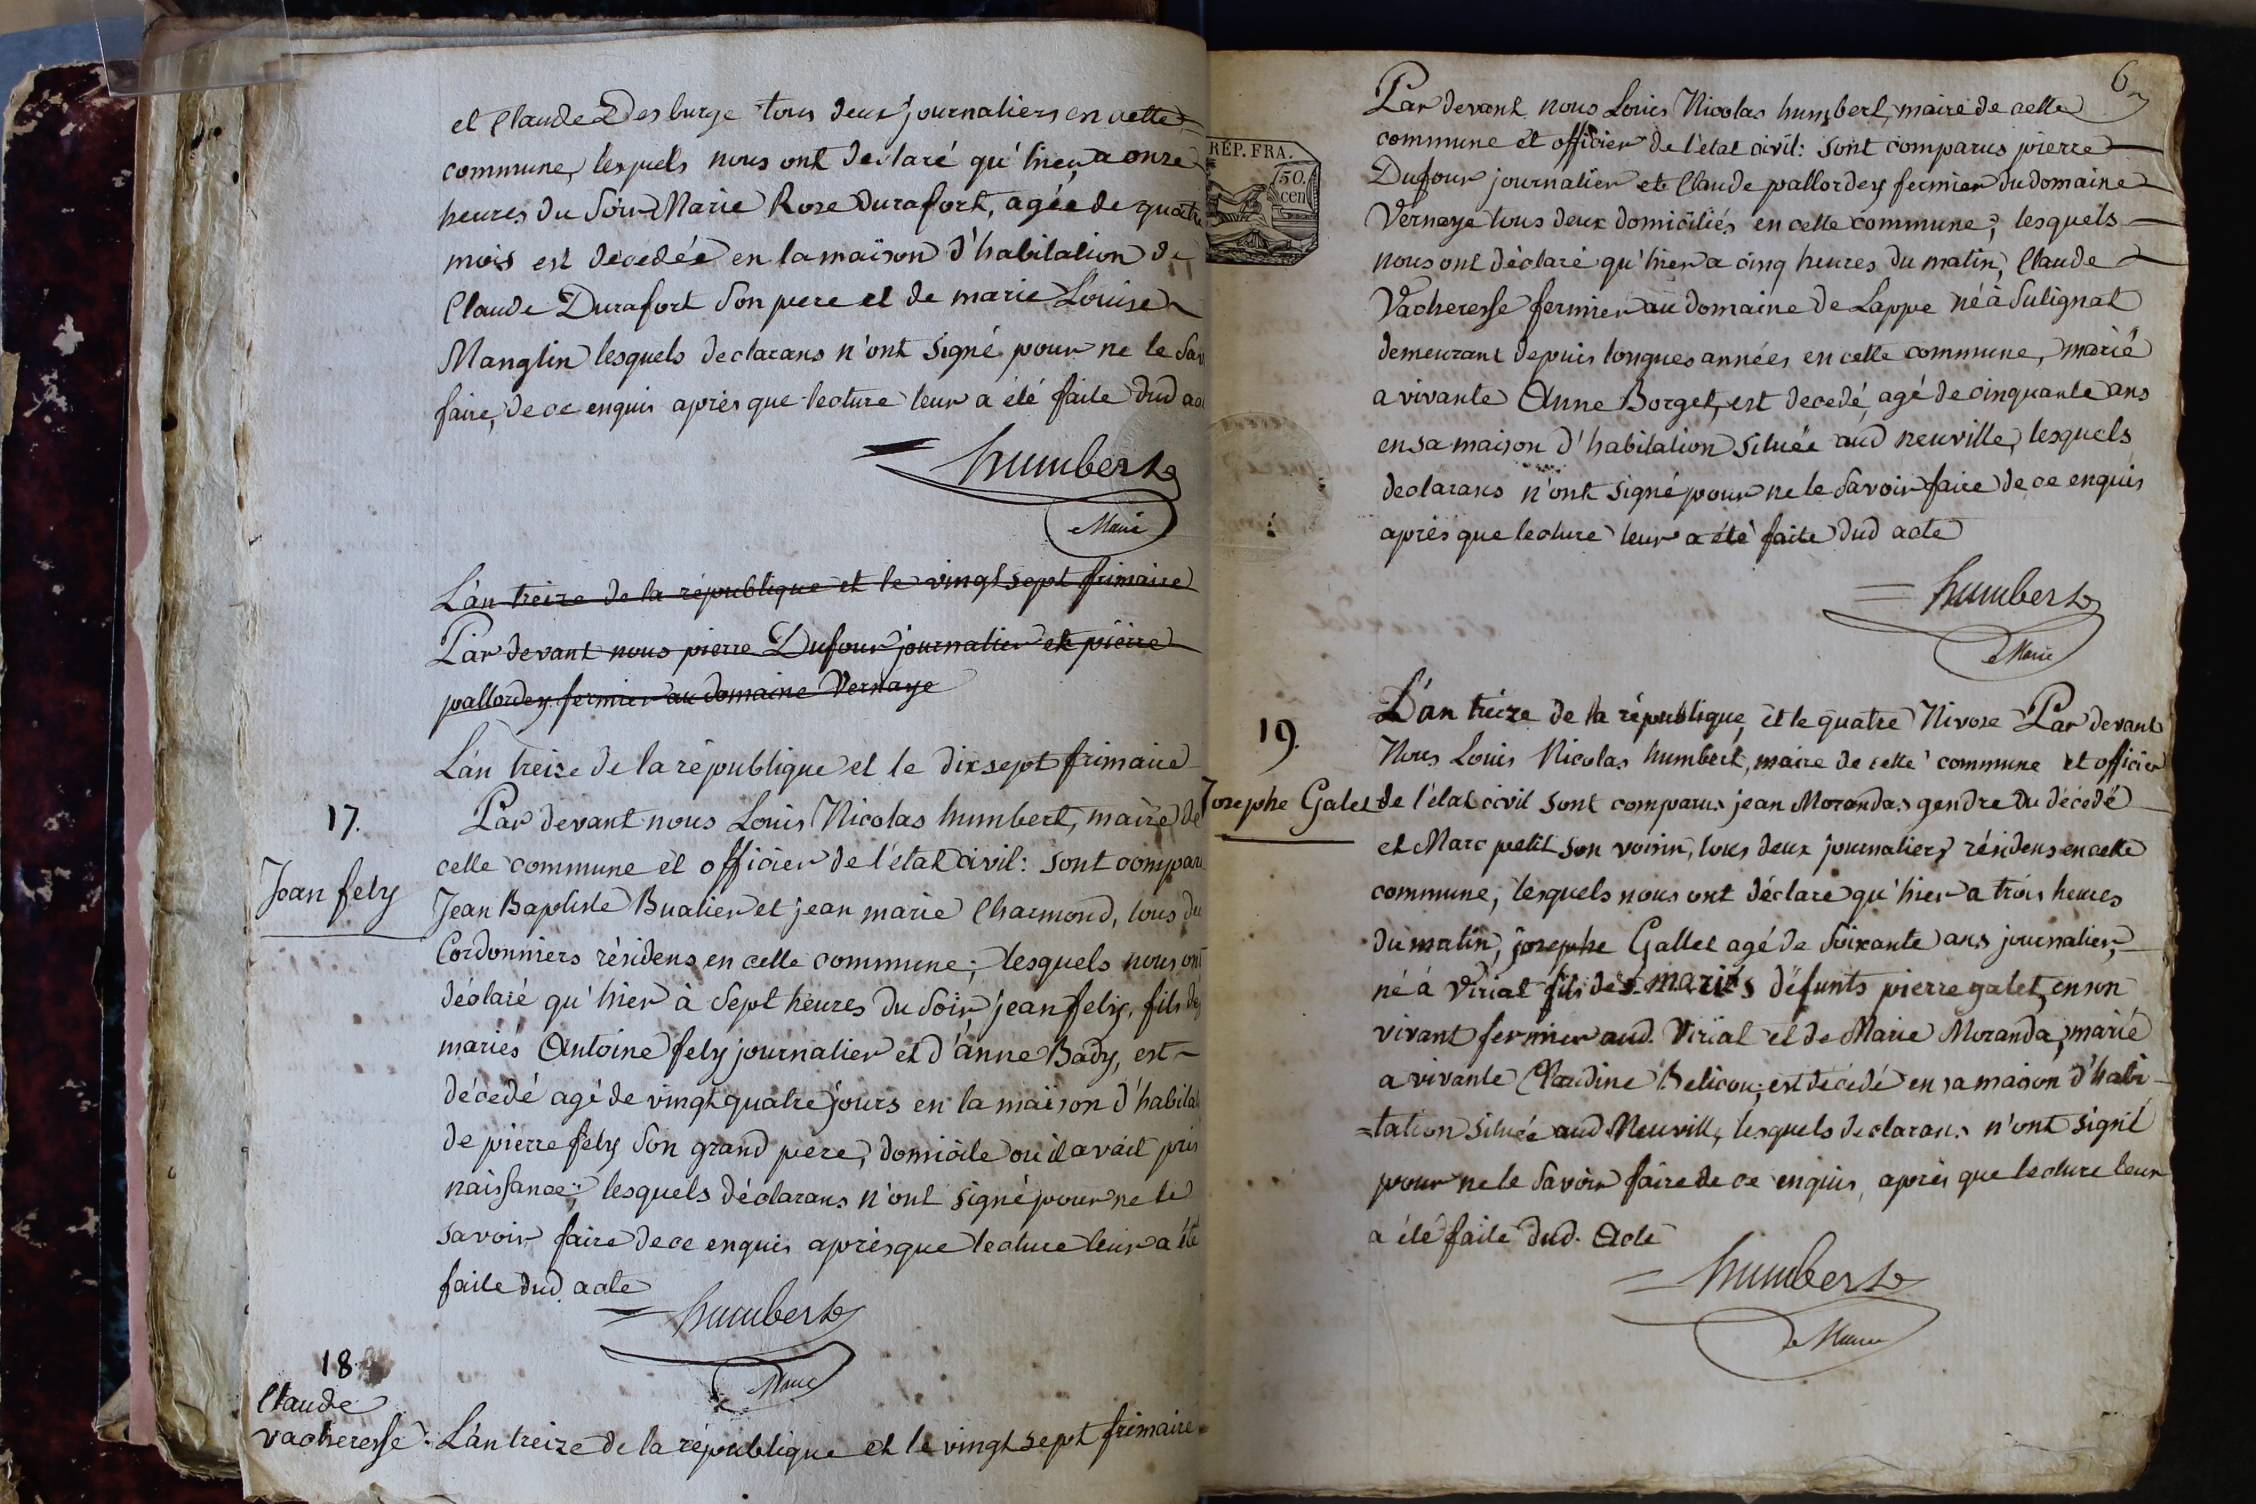 et Claude Desburge tous deux journaliers en cette
commune, lesquels nous ont declaré qu'hier, a onze
heures du soir Marie Rose Durafort, agée de quatre
mois est décédée en la maison d'habitation de
Claude Durafort son pere et de marie Louise
Manglin lesquels declarans n'ont signé pour ne le sav
faire, de ce enquis après que lecture leur a été faite dud ac
humbert
Maire
L'an treize de la république et le vingt sept frimaire
Par devant nous pierre Dufour journalier et pierre
pallordey fermier au domaine Vernaye
L'an treize de la république et le dix sept frimaire
17.
Par devant nous Louis Nicolas humbert, maire de
cette commune et officier de l'état civil: sont comparu
Jean fely
Jean Baptiste Bualier et jean marie Charmond, tous du
Cordonniers résidens en cette commune; lesquels nous ont
déclaré qu'hier à sept heures du soir, jean fely, fils des
mariés Antoine fely journalier et d'anne Bady, est
décédé agé de vingt quatre jours en la maison d'habita
de pierre fely son grand pere, domicile ou il avait pris
naissance; lesquels déclarans n'ont signé pour ne le
savoir faire de ce enquis après que lecture leur a été
faite dud acte
humbert
Maire
18.
Claude
vacheresse. L'an treize de la république et le vingt sept frimaire
6
Par devant nous Louis Nicolas humbert, maire de cette
commune et officier de l'état civil: sont comparus pierre
RÉP. FRA.
50.
cen
Dufour journalier et Claude pallordey fermier du domaine
Vernaye tous deux domiciliés en cette commune; lesquels
nous ont déclaré qu'hier a cinq heures du matin, Claude
Vacheresse fermier au domaine de Lappe né à Sulignat
demeurant depuis longues années en cette commune, marié
a vivante Anne Borget, est decedé, agé de cinquante ans
en sa maison d'habitation située aud neuville, lesquels
declarans n'ont signé pour ne le savoir faire de ce enquis
après que lecture leur a été faite dud acte
humbert
Maire
L'an treize de la république, et le quatre Nivose Par devant
19.
Nous Louis Nicolas humbert, maire de cette commune et officier
Josephe Galet de l'état civil sont comparus jean Morandas gendre du décedé
et Marc petit son voisin, tous deux journaliers résidens en cette
commune, lesquels nous ont déclaré qu'hier a trois heures
du matin, josephe Gallet agé de soixante ans journalier,
né à Virial fils des mariés défunts pierre galet, en son
vivant fermier aud. Virial et de Marie Moranda, marié
a vivante Claudine Belicou, est decédé en sa maison d'habi
=tation située aud Neuville, lesquels declarans n'ont signé
pour ne le savoir faire de ce enquis, après que lecture leur
a été faite dud. Acte
humbert
Maire